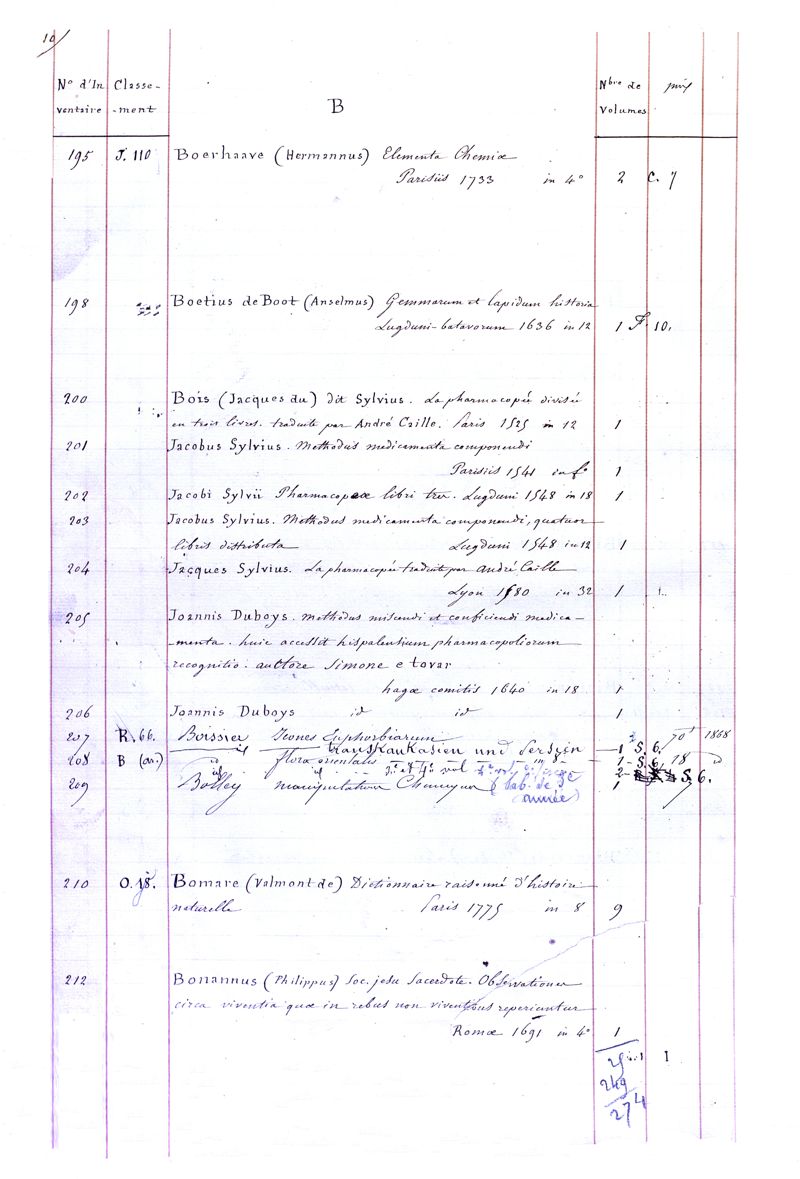 10
N° d'In Classe- Nbre de prix
ventaire -ment B Volumes
195 J. 110 Boerhaave (Hermannus) Elementa Chemiæ
Parisiis 1733 in 4° 2 C. 7
198 Boetius de Boot (Anselmus) Gemmarum et lapidum historia
Lugduni-batavorum 1636 in 12 1 F. 10.
200 Bois (Jacques du) dit Sylvius. La pharmacopée divisée
en trois livres. traduite par André Caille. Paris 1525 in 12 1
201 Jacobus Sylvius. Methodus medicamenta componendi
Parisiis 1541 in f° 1
202 Jacobi Sylvii Pharmacopeæ libri tres. Lugduni 1548 in 18 1
203 Jacobus Sylvius. Methodus medicamenta componendi, quatuor
libris distributa Lugduni 1548 in 12 1
204 Jacques Sylvius. La pharmacopée traduit par André Caille
Lyon 1580 in 32 1
205 Joannis Duboys. Methodus miscendi et conficiendi medica-
-menta. huic accessit hispalensium pharmacopoliorum
recognitio. auctore Simone e tovar
hagæ comitis 1640 in 18 1
206 Joannis Duboys id id 1
207 R. 66. Boissier Icones Euphorbiarum 1 S. 6. 1868
Kaukasien und Persien
208 B (an.) id flora orientalis 1 S. 6. 18
3e et 4e vol 2
209 Bolley manipulations Chimiques 1 S. 6.
année)
210 O. 18. Bomare (Valmont de) Dictionnaire raisonné d'histoire
naturelle Paris 1775 in 8 9
212 Bonannus (Philippus) Soc. jesu Sacerdote. Observationes
circa viventia quæ in rebus non viventibus reperiuntur
Romæ 1691 in 4° 1
25
249
274